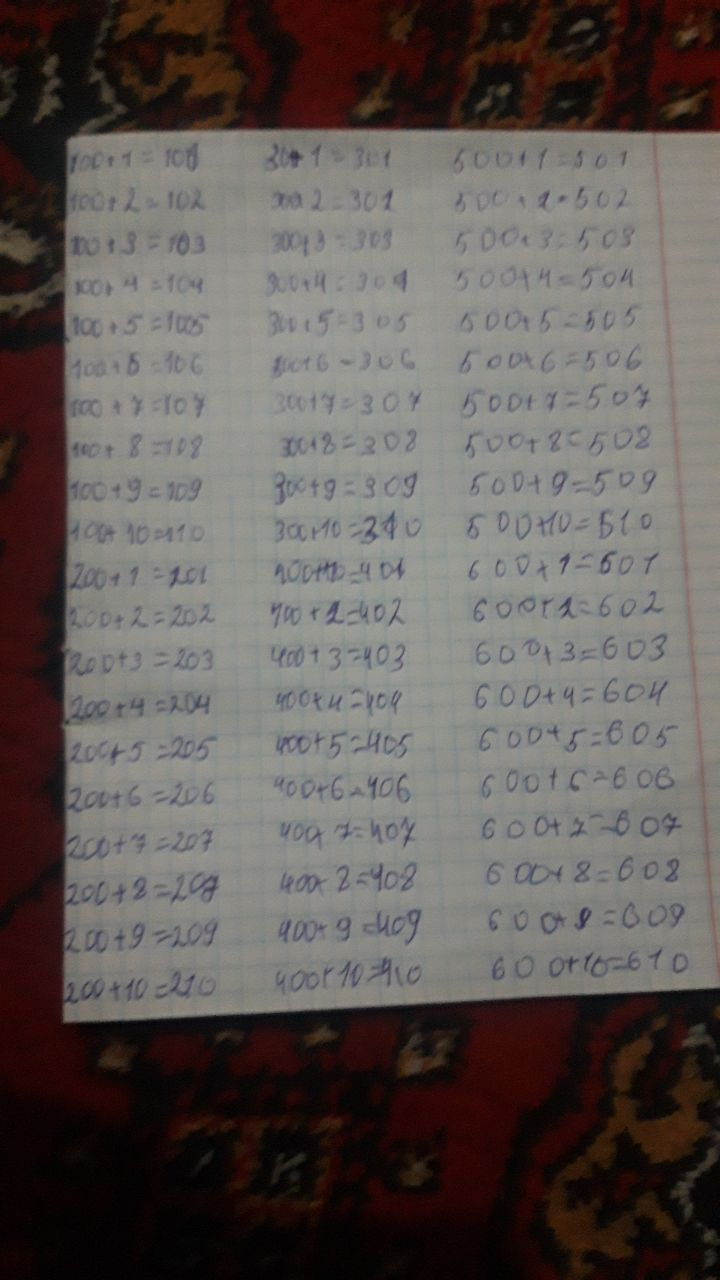 100+1=101
100+2=102
100+3=103
100+4=104
100+5=1005
100+6=106
100+7=107
100+8=108
100+9=109
100+10=110
200+1=201
200+2=202
200+3=203
200+4=204
200+5=205
200+6=206
200+7=207
200+8=208
200+9=209
200+10=210
30+1=301
300+2=302
300+3=303
300+4=304
300+5=305
300+6=306
300+7=307
300+8=308
300+9=309
300+10=310
=401
400+2=402
400+3=403
400+4=404
400+5=405
400+6=406
400+7=407
400+8=408
400+9=409
400+10=410
500+1=501
500+2=502
500+3=503
500+4=504
500+5=505
500+6=506
500+7=507
500+8=508
500+9=509
500+10=510
600+1=601
600+2=602
600+3=603
600+4=604
600+5=605
600+6=606
600+7=607
600+8=608
600+9=609
600+10=610